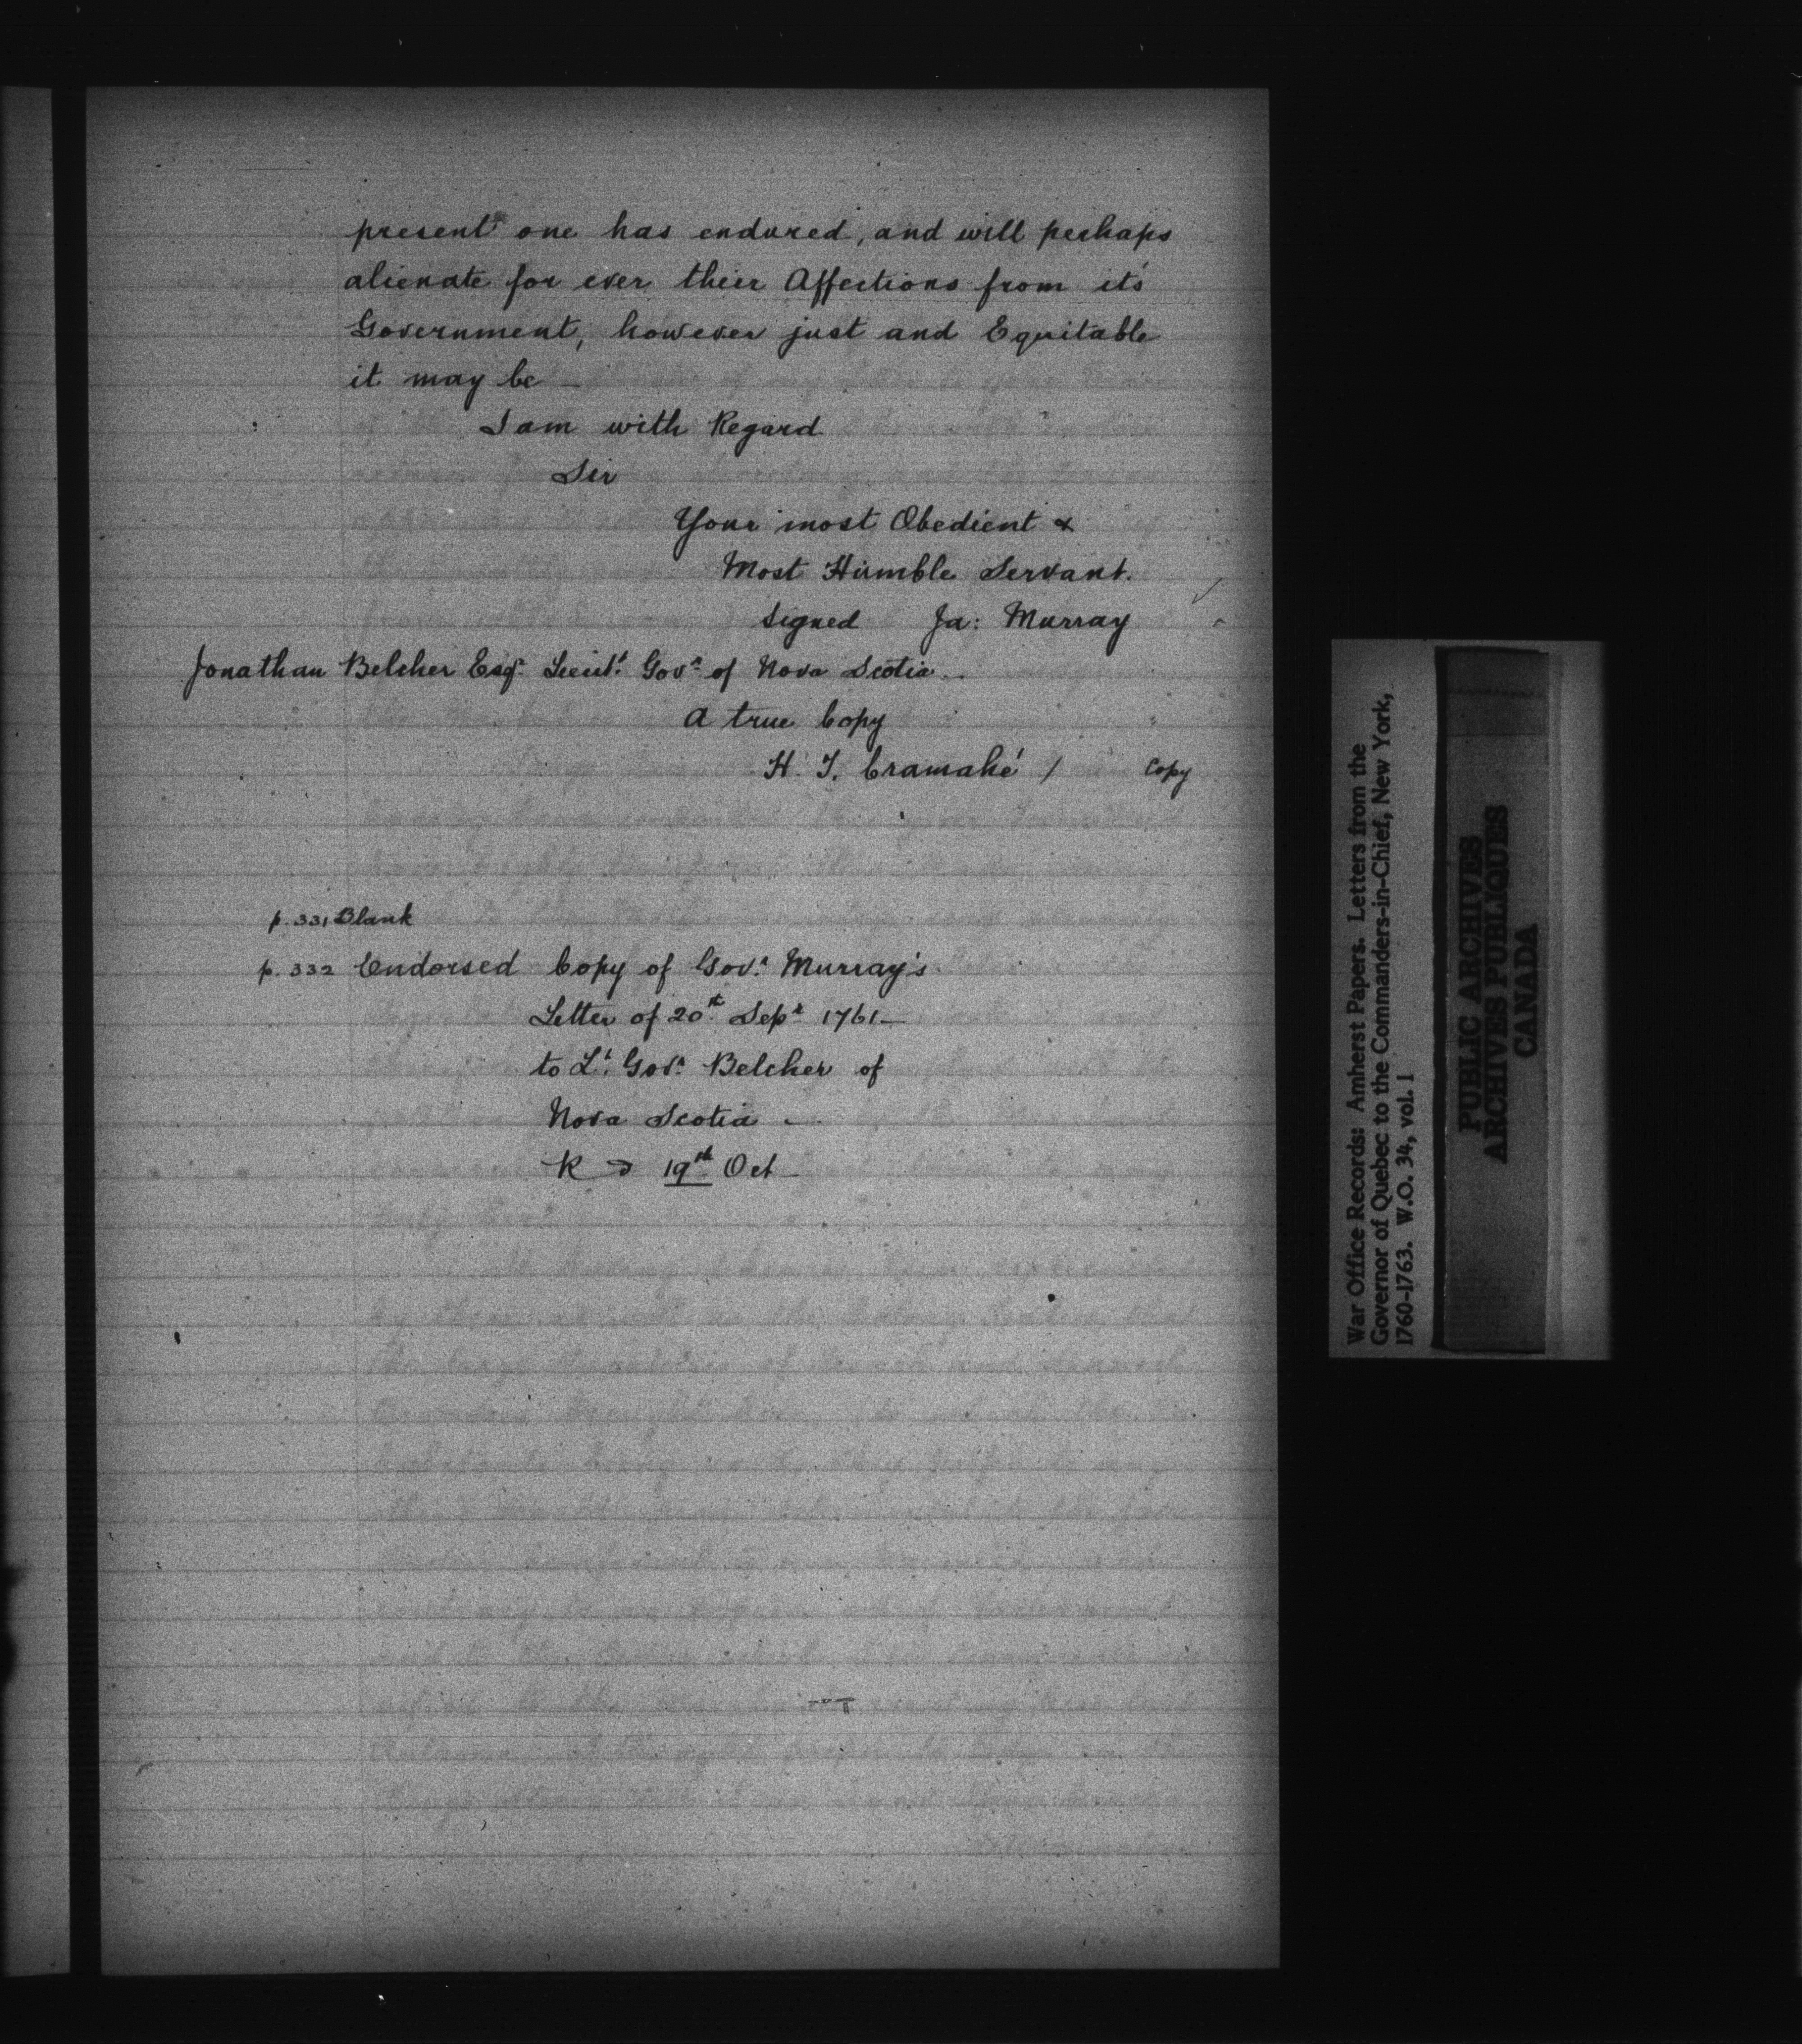 present one has endured, and will perhaps
alienate for ever their Affections from its
Government, however just and Equitable
it may be —
I am with Regard
Sir
Your most Obedient &
Most Humble Servant.
Signed Ja: Murray
Jonathan Belcher Esqr. Lieut. Govr. of Nova Scotia.
A true Copy
H. T. Cramahé / Copy
p. 331 Blank
p. 332 Endorsed Copy of Govr. Murray's
Letter of 20th Sept 1761—
to Lt. Govr. Belcher of
Nova Scotia —
R 19th Oct —
War Office Records: Amherst Papers. Letters from the
Governor of Quebec to the Commanders-in-Chief, New York,
1760-1763. W.O. 34, vol. 1
PUBLIC ARCHIVES
ARCHIVES PUBLIQUES
CANADA